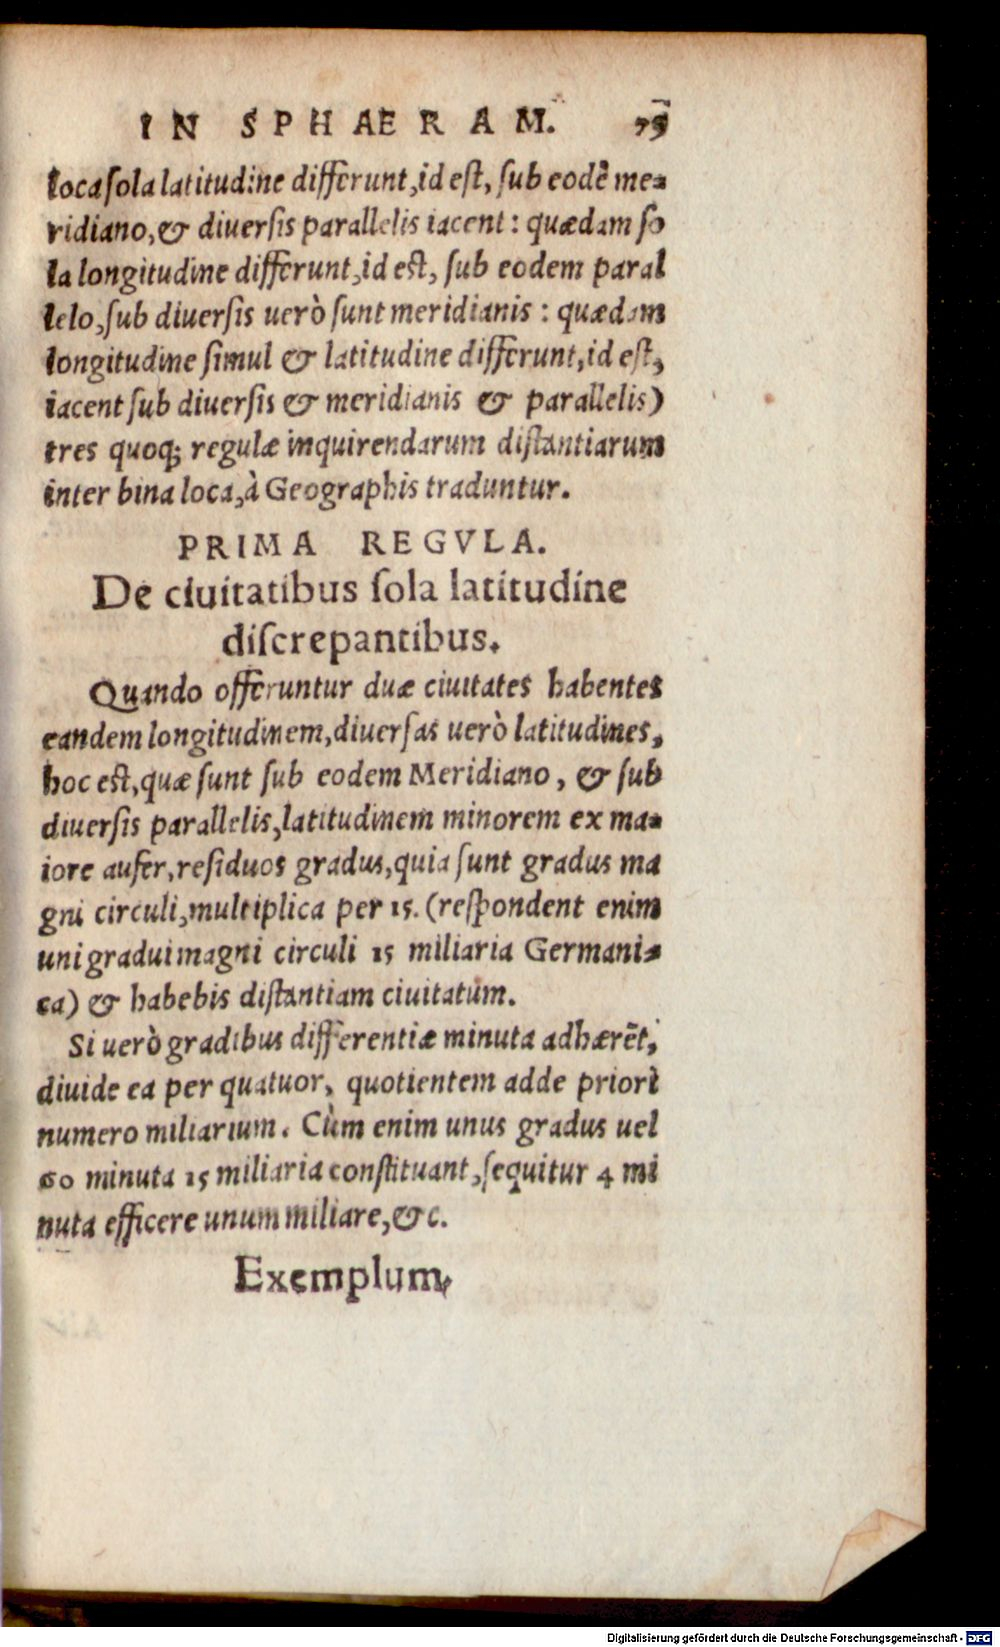 IN SPHAERAM. 79
loca sola latitudine differunt, id est, sub eodē me-
ridiano, & diuersis parallelis iacent: quædam so
la longitudine differunt, id est, sub eodem paral
lelo, sub diuersis uerò sunt meridianis: quædam
longitudine simul & latitudine differunt, id est,
iacent sub diuersis & meridianis & parallelis)
tres quoq; regulæ inquirendarum distantiarum
inter bina loca, à Geographis traduntur.
PRIMA REGVLA.
De ciuitatibus sola latitudine
discrepantibus.
Quando offeruntur duæ ciuitates habentes
eandem longitudinem, diuersas uerò latitudines,
hoc est, quæ sunt sub eodem Meridiano, & sub
diuersis parallelis, latitudinem minorem ex ma-
iore aufer, residuos gradus, quia sunt gradus ma
gni circuli, multiplica per 15. (respondent enim
uni gradui magni circuli 15 miliaria Germani-
ca) & habebis distantiam ciuitatum.
Si uerò gradibus differentiæ minuta adhærēt,
diuide ea per quatuor, quotientem adde priori
numero miliarium. Cùm enim unus gradus uel
60 minuta 15 miliaria constituant, sequitur 4 mi
nuta efficere unum miliare, &c.
Exemplum,
Digitalisierung gefördert durch die Deutsche Forschungsgemeinschaft - DFG